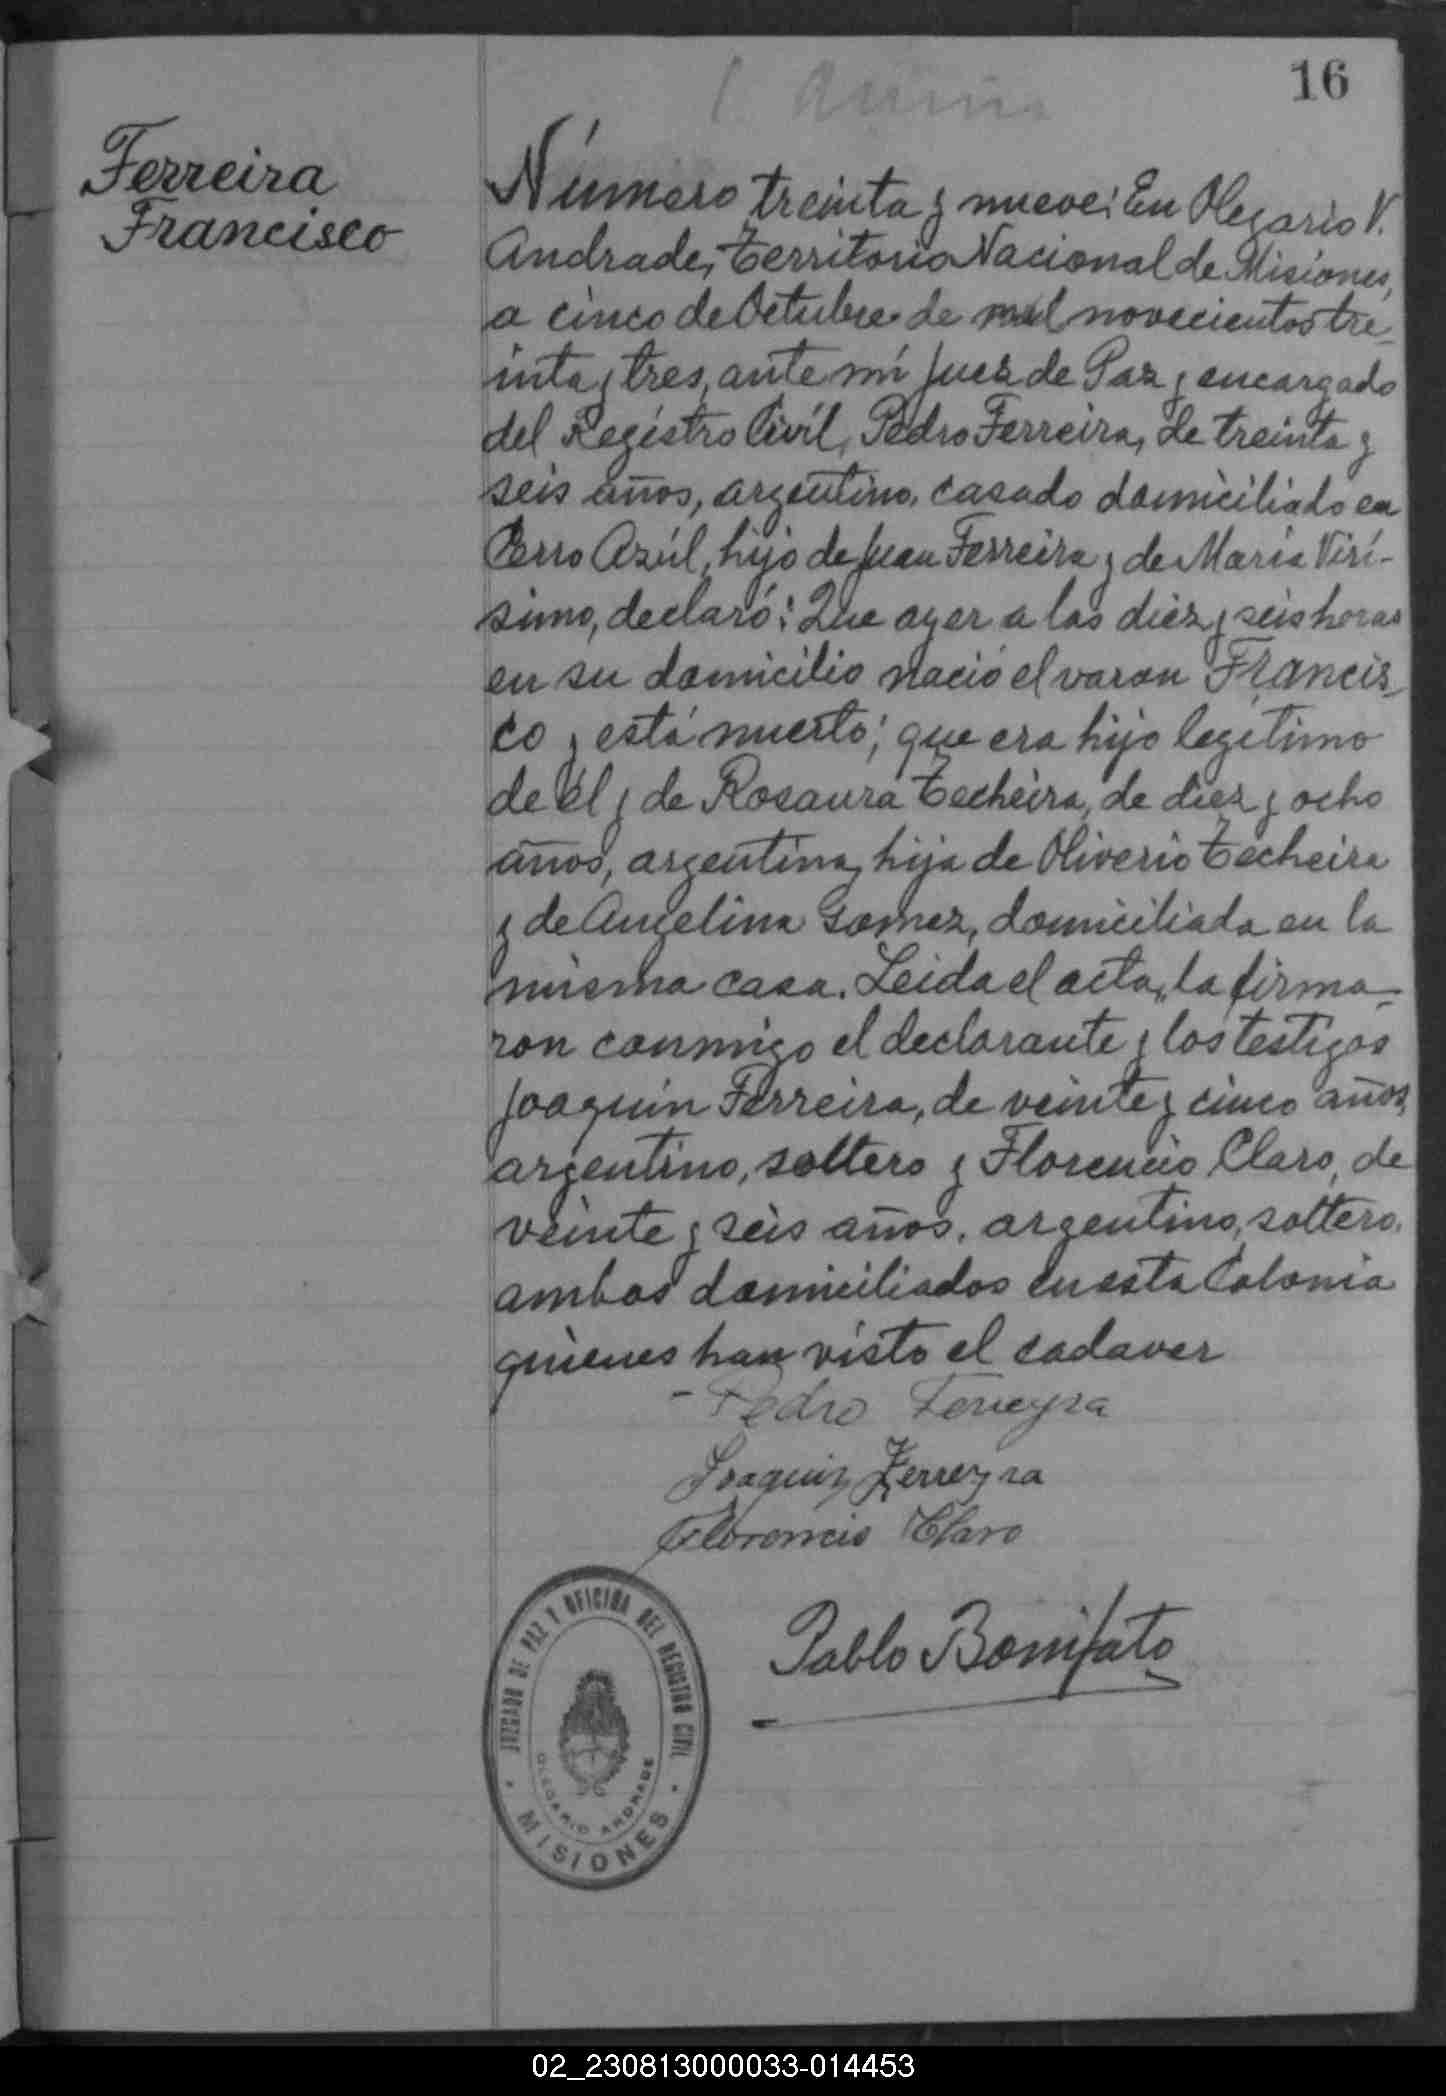 16
Ferreira
Francisco
Número treinta y nueve: En Olegario V.
Andrade, Territorio Nacional de Misiones,
a cinco de Octubre de mil novecientos tre-
inta y tres, ante mí Juez de Paz y encargado
del Registro Civíl, Pedro Ferreira, de treinta y
seis años, argentino, casado domiciliado en
Cerro Azúl, hijo de Juan Ferreira y de María Virí-
simo, declaró: Que ayer a las diez y seis horas
en su domicilio nació el varon Francis-
co y está muerto; que era hijo legítimo
de él y de Rosaura Techeira, de diez y ocho
años, argentina, hija de Oliverio Techeira
y de Angelina Gomez, domiciliada en la
misma casa. Leida el acta, la firma-
ron conmigo el declarante y los testigos
Joaquín Ferreira, de veinte y cinco años,
argentino, soltero y Florencio Claro, de
veinte y seis años, argentino, soltero,
ambos domiciliados en esta Colonia
quienes han visto el cadaver
- Pedro Ferreyra
Joaquin Ferreyra
Florencio Claro
Pablo Bonifato
JUZGADO DE PAZ Y OFICINA DEL REGISTRO CIVIL
OLEGARIO ANDRADE
MISIONES
02_230813000033-014453